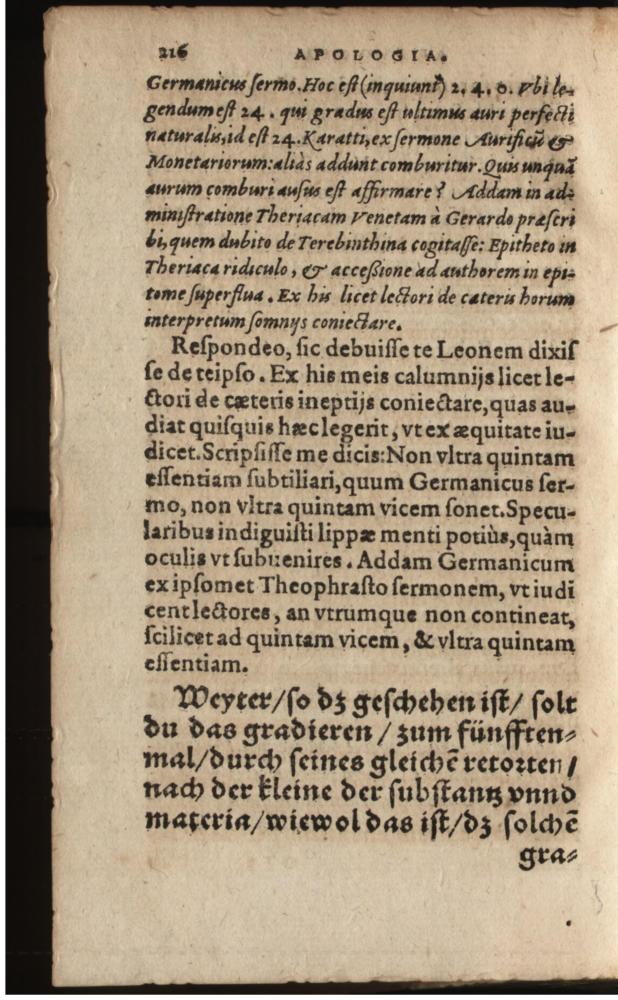 216 APOLOGIA.
Germanicus sermo. Hoc est (inquiunt) 2. 4. 0. Vbi le-
gendum est 24. qui gradus est ultimus auri perfecti
naturalis, id est 24. Karatti, ex sermone Aurificū &
Monetariorum: aliàs addunt comburitur. Quis unquā
aurum comburi ausus est affirmare? Addam in ad-
ministratione Theriacam Venetam à Gerardo præscri
bi, quem dubito de Terebinthina cogitasse: Epitheto in
Theriaca ridiculo, & accessione ad authorem in epi-
tome superflua. Ex his licet lectori de cæteris horum
interpretum somnijs coniectare.
Respondeo, sic debuisse te Leonem dixis
se de teipso. Ex his meis calumnijs licet le-
ctori de cæteris ineptijs coniectare, quas au-
diat quisquis hæc legerit, vt ex æquitate iu-
dicet. Scripsisse me dicis: Non vltra quintam
essentiam subtiliari, quum Germanicus ser-
mo, non vltra quintam vicem sonet. Specu-
laribus indiguisti lippæ menti potiùs, quàm
oculis vt subuenires. Addam Germanicum
ex ipsomet Theophrasto sermonem, vt iudi
cent lectores, an vtrumque non contineat,
scilicet ad quintam vicem, & vltra quintam
essentiam.
Weyter/ so dz geschehen ist/ solt
du das gradieren / zum fünfften-
mal/ durch seines gleichē retorten /
nach der kleine der substantz vnnd
materia/ wiewol das ist/ dz solchē
gra-